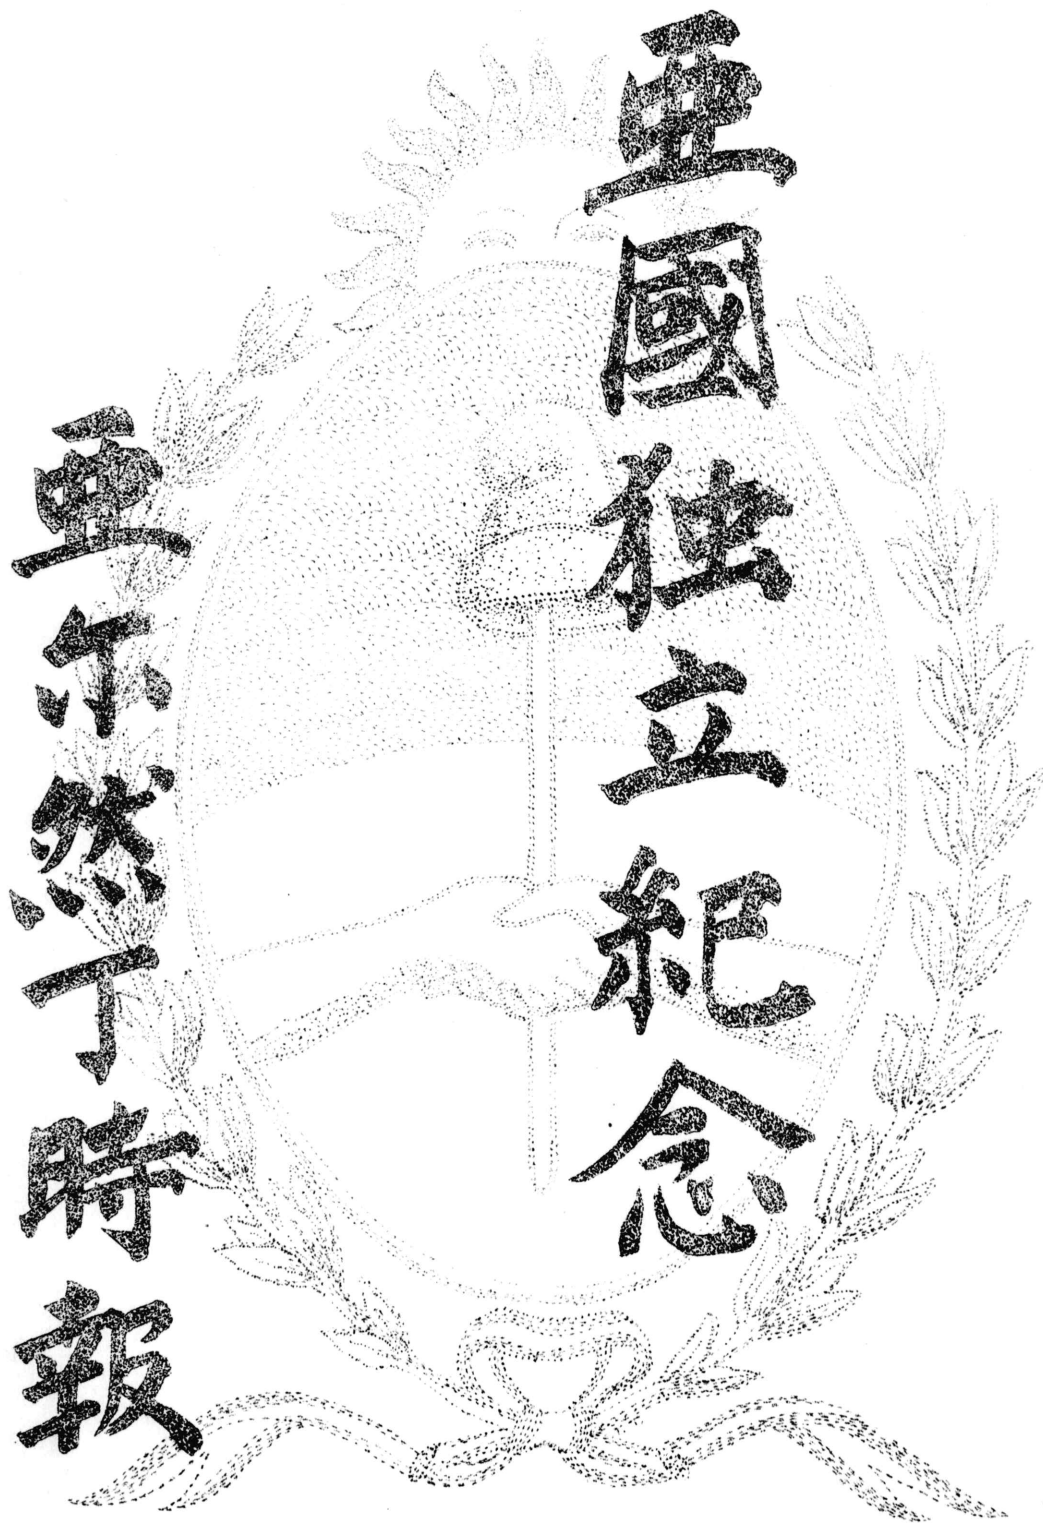 亜國独立紀念
亜尓然丁時報